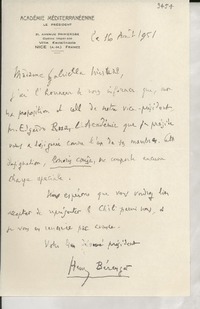 3454
ACADÉMIE MÉDITERRANÉENNE
LE PRÉSIDENT
NICE (A.-M.) FRANCE
Le 16 Août 1951
Madame Gabriela Mistral,
j'ai l'honneur de vous informer que, sur
ma proposition et celle de notre vice-président,
M. l'Académie
vous a désignée comme l'un de ses membres. Cette
désignation, honoris causa, ne comporte aucune
charge spéciale.
Nous espérons que vous voudrez bien
accepter de représenter le Chili parmi nous, et
je vous en remercie par avance.
Votre bien président
Henry Bérenger